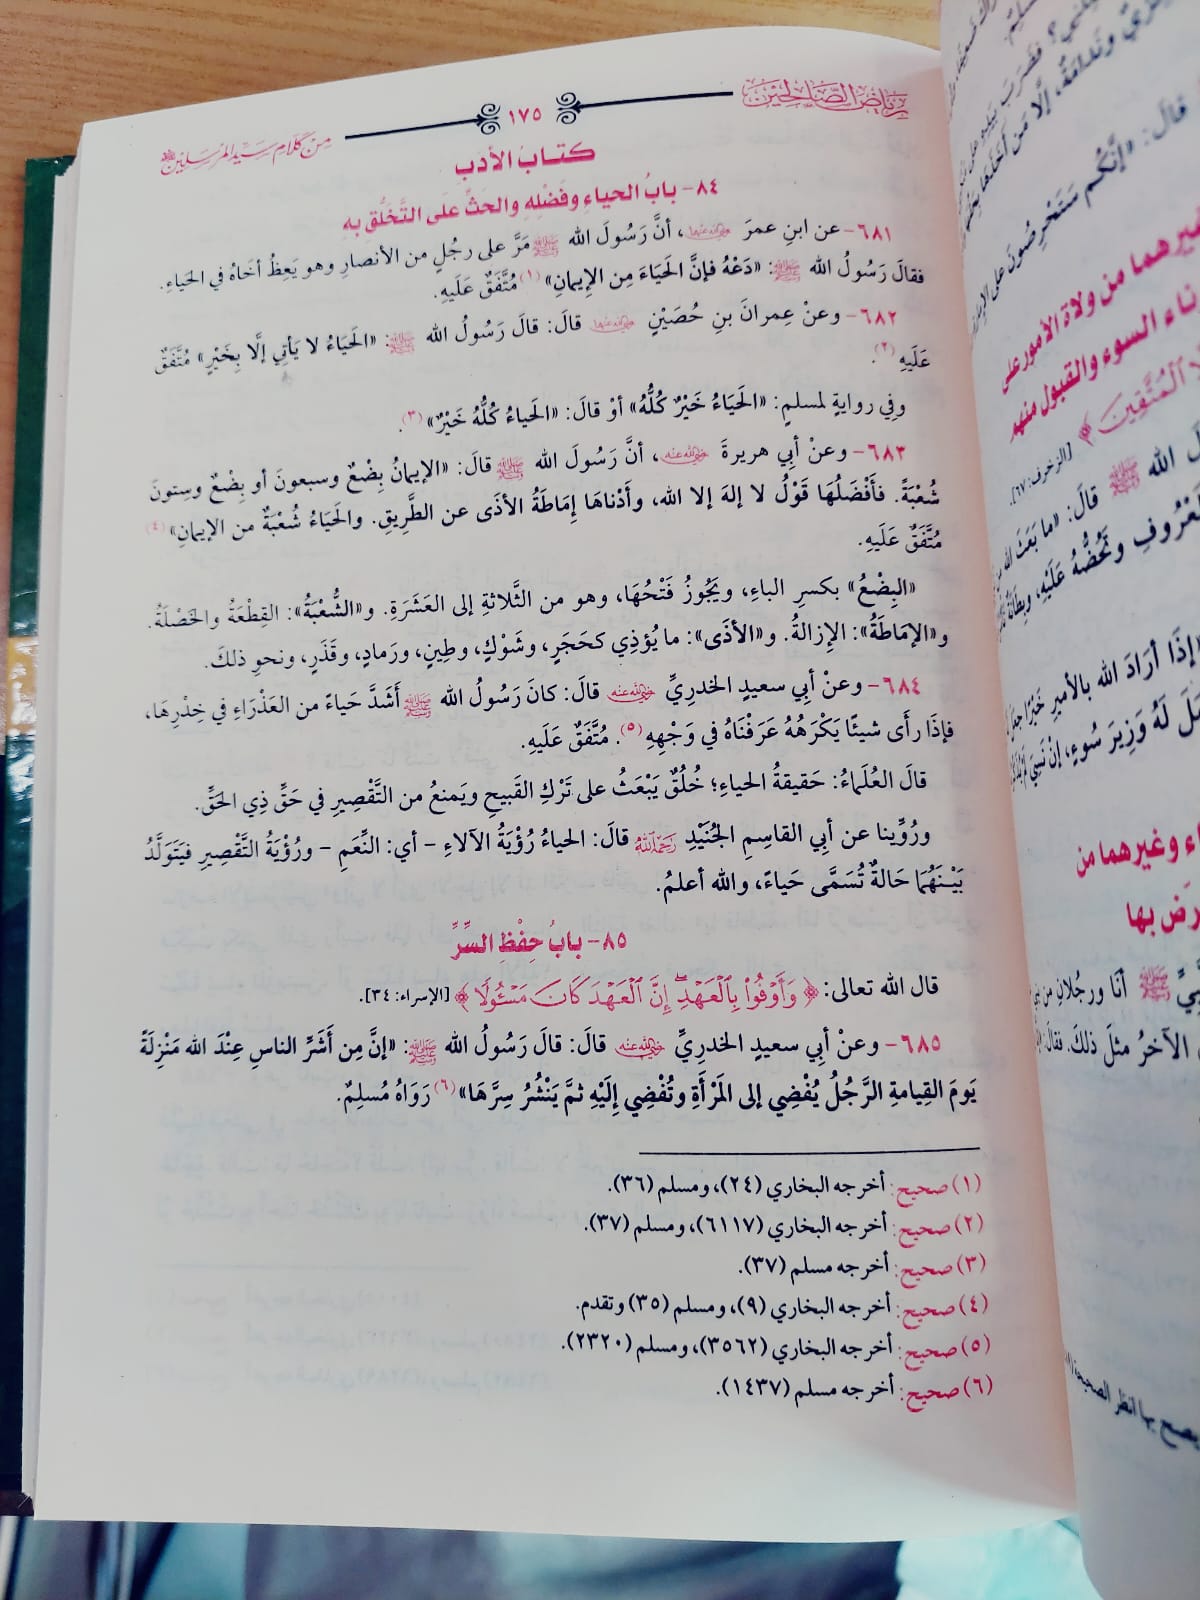 رياض الصالحين
١٧٥
من كلام سيد المرسلين ﷺ
كتاب الأدب
٨٤- بابُ الحياءِ وفَضْلِهِ والحَثِّ على التَّخَلُّقِ بهِ
٦٨١- عن ابنِ عمرَ رضي الله عنهما، أنَّ رَسُولَ الله ﷺ مَرَّ على رجُلٍ من الأنصارِ وهو يَعِظُ أخَاهُ في الحَياءِ.
فقالَ رَسُولُ الله ﷺ: «دَعْهُ فإنَّ الحَيَاءَ مِن الإِيمانِ»(١) مُتَّفَقٌ عَلَيهِ.
٦٨٢- وعنْ عِمرانَ بنِ حُصَيْنٍ رضي الله عنهما قالَ: قالَ رَسُولُ الله ﷺ: «الحَيَاءُ لا يَأتِي إلَّا بِخَيْرٍ» مُتَّفَقٌ
عَلَيهِ(٢).
وفي روايةٍ لمسلمٍ: «الحَيَاءُ خَيْرٌ كُلُّهُ» أوْ قالَ: «الحَياءُ كُلُّهُ خَيْرٌ»(٣).
٦٨٣- وعنْ أبي هريرةَ رضي الله عنه، أنَّ رَسُولَ الله ﷺ قالَ: «الإيمانُ بِضْعٌ وسبعونَ أو بِضْعٌ وستونَ
شُعْبَةً. فأَفْضَلُهَا قَوْلُ لا إلهَ إلا الله، وأَدْناهَا إمَاطَةُ الأذَى عن الطَّرِيقِ. والحَيَاءُ شُعْبَةٌ من الإيمانِ»(٤)
مُتَّفَقٌ عَلَيهِ.
«البِضْعُ» بكسرِ الباءِ، ويَجُوزُ فَتْحُهَا، وهو من الثَّلاثةِ إلى العَشَرَةِ. و«الشُّعْبَةُ»: القِطْعَةُ والخَصْلَةُ.
و«الإمَاطَةُ»: الإزالةُ. و«الأذَى»: ما يُؤذِي كحَجَرٍ، وشَوْكٍ، وطِينٍ، ورَمادٍ، وقَذَرٍ، ونحوِ ذلكَ.
٦٨٤- وعنْ أبي سعيدٍ الخدريِّ رضي الله عنه قالَ: كانَ رَسُولُ الله ﷺ أَشَدَّ حَياءً من العَذْرَاءِ في خِدْرِهَا،
فإذَا رأَى شيئًا يَكْرَهُهُ عَرَفْنَاهُ في وَجْهِهِ(٥). مُتَّفَقٌ عَلَيهِ.
قالَ العُلَماءُ: حَقيقةُ الحياءِ؛ خُلُقٌ يَبْعَثُ على تَرْكِ القَبيحِ ويَمنعُ من التَّقْصِيرِ في حَقِّ ذِي الحَقِّ.
ورُوِّينا عن أبي القاسِمِ الجُنَيْدِ رحمه الله قالَ: الحياءُ رُؤْيَةُ الآلاءِ - أي: النِّعَمِ - ورُؤْيَةُ التَّقْصِيرِ فيَتَوَلَّدُ
بَيْنَهُمَا حَالةٌ تُسَمَّى حَياءً، والله أعلمُ.
٨٥- بابُ حِفْظِ السِّرِّ
قال الله تعالى: ﴿وَأَوْفُوا۟ بِٱلْعَهْدِ ۖ إِنَّ ٱلْعَهْدَ كَانَ مَسْـُٔولًا﴾ [الإسراء: ٣٤].
٦٨٥- وعنْ أبي سعيدٍ الخدريِّ رضي الله عنه قالَ: قالَ رَسُولُ الله ﷺ: «إنَّ مِن أَشَرِّ الناسِ عِنْدَ الله مَنْزِلَةً
يَومَ القِيامةِ الرَّجُلُ يُفْضِي إلى المَرْأَةِ وتُفْضِي إلَيْهِ ثمَّ يَنْشُرُ سِرَّهَا»(٦) رَوَاهُ مُسلِمٌ.
(١) صحيح: أخرجه البخاري (٢٤)، ومسلم (٣٦).
(٢) صحيح: أخرجه البخاري (٦١١٧)، ومسلم (٣٧).
(٣) صحيح: أخرجه مسلم (٣٧).
(٤) صحيح: أخرجه البخاري (٩)، ومسلم (٣٥) وتقدم.
(٥) صحيح: أخرجه البخاري (٣٥٦٢)، ومسلم (٢٣٢٠).
(٦) صحيح: أخرجه مسلم (١٤٣٧).
قالَ: «إنَّكُم سَتَحْرِصُونَ على
غيرهما من ولاة الأمور على
ناء السوء والقبول منهم
ٱلْمُتَّقِينَ﴾ [الزخرف: ٦٧].
الله ﷺ قالَ: «ما بَعَثَ الله
وتَحُضُّهُ عَلَيْهِ، وبِطَانَةٌ
إذَا أرَادَ الله بالأميرِ خَيْرًا
لَهُ وَزِيرَ سُوءٍ، إنْ نَسِيَ
ء وغيرهما من
رَّض بها
ﷺ أنَا ورجُلانِ مِن
الآخرُ مثلَ ذلكَ. فقالَ:
انظر الصحيحة